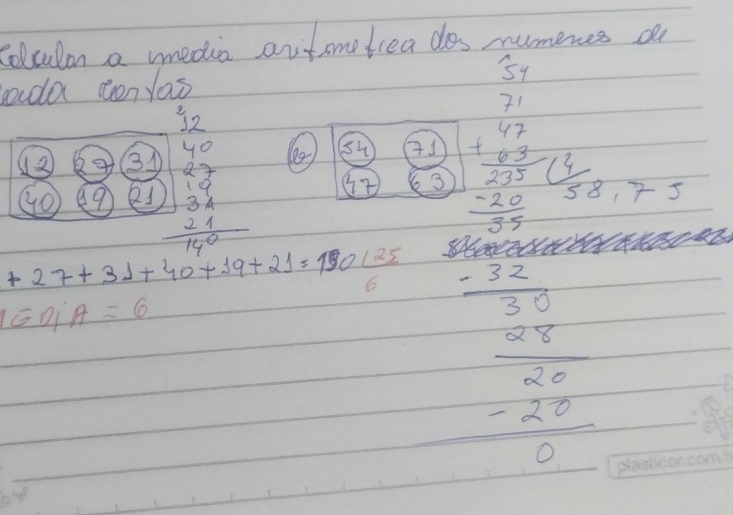 Calcular a media aritmetica dos numeros de
cada cartas
12 27 31
40 19 21
12
40
27
19
31
21
140
b) 54 71
47 63
54
71
47
+ 63
235 4
58,75
-20
35
-32
30
28
20
-20
0
+ 27 + 31 + 40 + 19 + 21 = 150 25
6
MEDIA = 6
plasticor.com.b